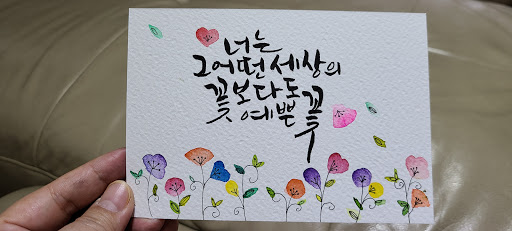 너는
그어떤세상의
꽃보다도
예쁜꽃